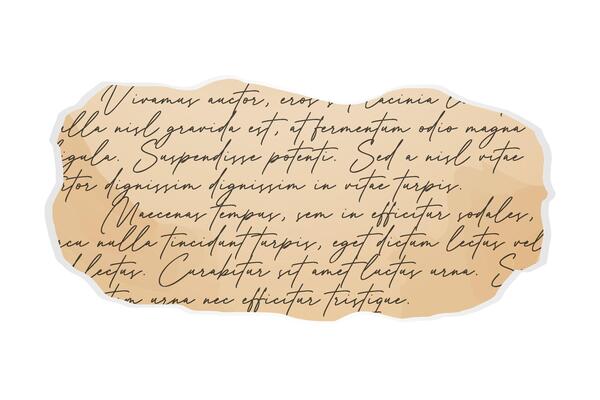 Vivamus auctor, eros
nisl gravida est, at fermentum odio magna
Suspendisse potenti. Sed a nisl vitae
dignissim dignissim in vitae turpis.
Maecenas tempus, sem in efficitur sodales,
nulla tincidunt turpis, eget dictum lectus vel
lectus. Curabitur sit amet luctus urna.
urna nec efficitur tristique.